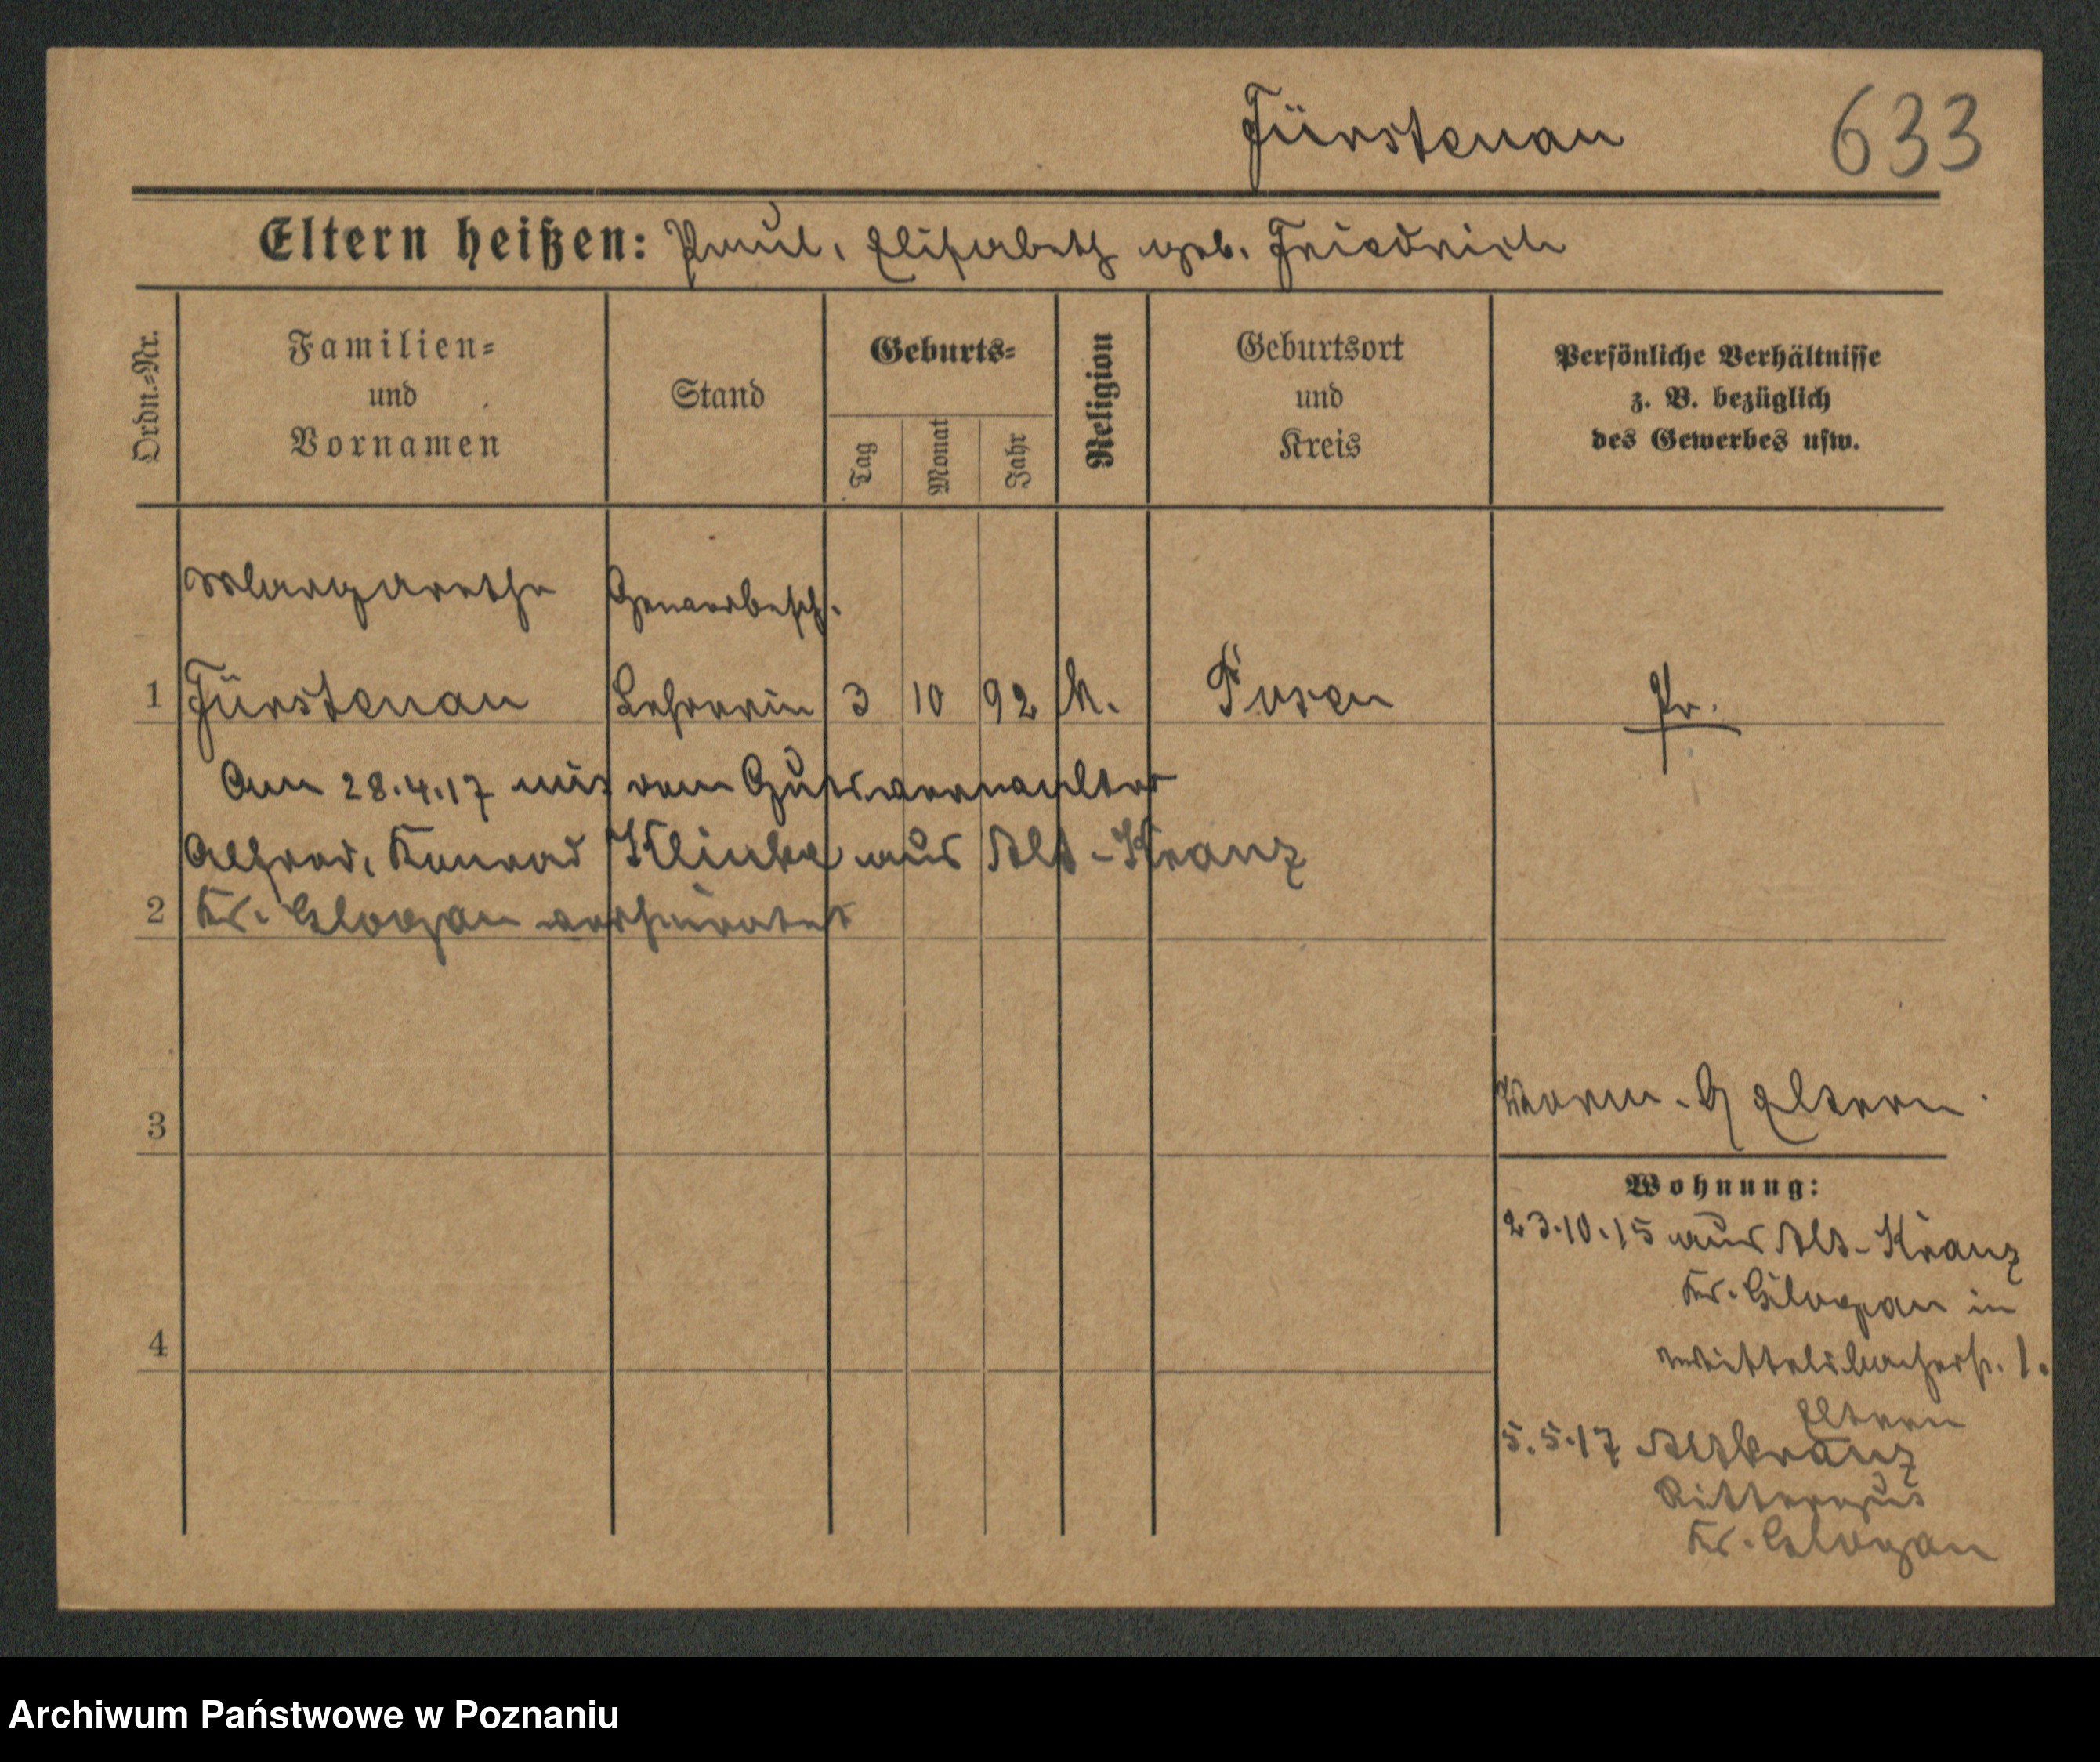 Fürstenau 633
Eltern heißen: Paul, Elisabeth geb. Friedrich
Ordn.-Nr.
Familien-
und
Vornamen
Stand
Geburts-
Tag
Monat
Jahr
Religion
Geburtsort
und
Kreis
Persönliche Verhältnisse
z. B. bezüglich
des Gewerbes usw.
Margarethe Gewerbesch.
1 Fürstenau Lehrerin 3 10 92 Posen Pr.
Am 28.4.17 mit dem Gutsverwalter
Alfred, Konrad Klinke aus Alt-Kranz
2 Kr. Glogau verheiratet
3
Eltern
Wohnung:
23.10.15 aus Alt-Kranz
Kr. Glogau in
Wittelsbacherstr. 1.
4
Eltern
5.5.17 Altkranz
Rittergut
Kr. Glogau
Archiwum Państwowe w Poznaniu